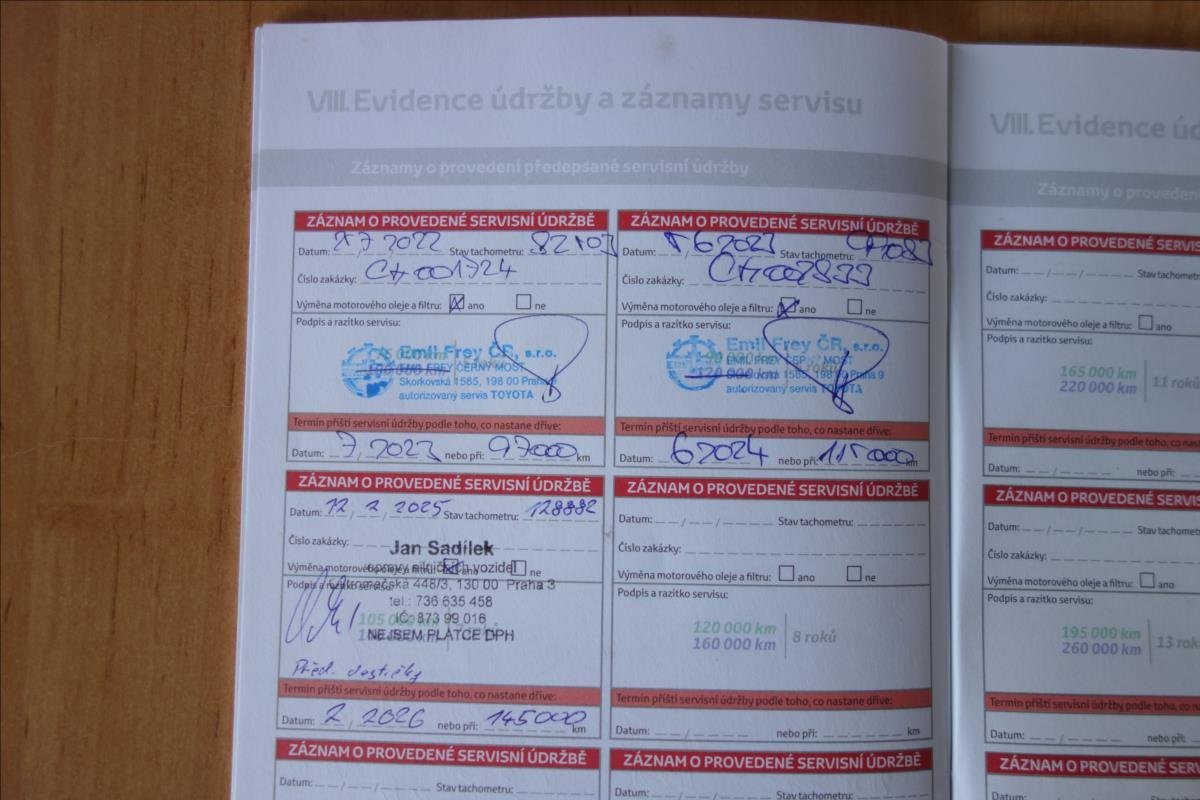 VIII. Evidence údržby a záznamy servisu
Záznamy o provedení předepsané servisní údržby
ZÁZNAM O PROVEDENÉ SERVISNÍ ÚDRŽBĚ
Datum: 7 2022 Stav tachometru: 82103
Číslo zakázky:
Výměna motorového oleje a filtru: ano ne
Podpis a razítko servisu:
Emil Frey ČR, s.r.o.
EMIL FREY ČERNÝ MOST
Skorkovská 1585, 198 00 Praha 9
autorizovaný servis TOYOTA
Termín příští servisní údržby podle toho, co nastane dříve:
Datum: 7 2023 nebo při: 97000 km
ZÁZNAM O PROVEDENÉ SERVISNÍ ÚDRŽBĚ
Datum: 6 2023 Stav tachometru:
Číslo zakázky:
Výměna motorového oleje a filtru: ano ne
Podpis a razítko servisu:
Emil Frey ČR, s.r.o.
EMIL FREY ČERNÝ MOST
1585, 198 00 Praha 9
autorizovaný servis TOYOTA
Termín příští servisní údržby podle toho, co nastane dříve:
Datum: 6 2024 nebo při: km
ZÁZNAM O PROVEDENÉ SERVISNÍ ÚDRŽBĚ
Datum: 12 2 2025 Stav tachometru: 128882
Číslo zakázky:
Jan Sadílek
Výměna motorového oleje a filtru: ano ne
opravy silničních vozidel
Podpis a razítko servisu:
448/3, 130 00 Praha 3
tel.: 736 635 458
IČ: 873 99 016
105 000 km
NEJSEM PLÁTCE DPH
Před. destičky
Termín příští servisní údržby podle toho, co nastane dříve:
Datum: 2 2026 nebo při: 145000 km
ZÁZNAM O PROVEDENÉ SERVISNÍ ÚDRŽBĚ
Datum: Stav tachometru:
Číslo zakázky:
Výměna motorového oleje a filtru: ano ne
Podpis a razítko servisu:
120 000 km
160 000 km
8 roků
Termín příští servisní údržby podle toho, co nastane dříve:
Datum: nebo při: km
ZÁZNAM O PROVEDENÉ SERVISNÍ ÚDRŽBĚ
Datum: Stav tachometru:
ZÁZNAM O PROVEDENÉ SERVISNÍ ÚDRŽBĚ
Datum: Stav tachometru:
VIII. Evidence ú
Záznamy o proveden
ZÁZNAM O PROVEDENÉ SERVIS
Datum: Stav tachomet
Číslo zakázky:
Výměna motorového oleje a filtru: ano
Podpis a razítko servisu:
165 000 km
220 000 km
11 roků
Termín příští servisní údržby podle toho, co nast
Datum: nebo při:
ZÁZNAM O PROVEDENÉ SERVISN
Datum: Stav tachomet
Číslo zakázky:
Výměna motorového oleje a filtru: ano
Podpis a razítko servisu:
195 000 km
260 000 km
13 roků
Termín příští servisní údržby podle toho, co nasta
Datum: nebo při:
ZÁZNAM O PROVEDENÉ SERVISN
Datum: Stav tachomet